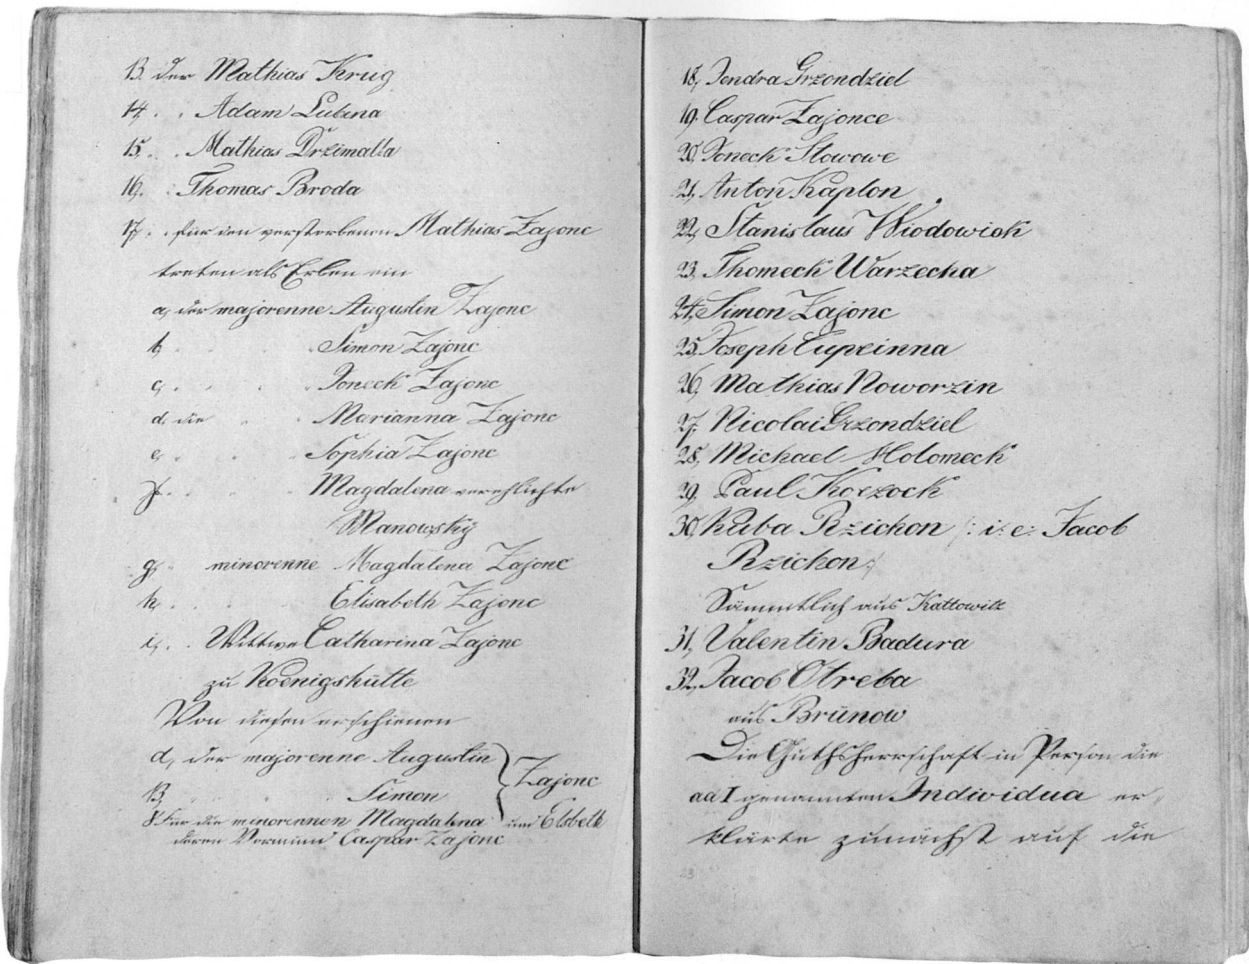 13. der Mathias Krug
14. . . Adam Lubina
15. . . Mathias Drzimalla
16. . Thomas Broda
17. . für den verstorbenen Mathias Zajonc
treten als Erben ein
a, der majorenne Augustin Zajonc
b, . . . Simon Zajonc
c, . . . Joneck Zajonc
d, die . . Marianna Zajonc
e, . . . Sophia Zajonc
f, . . . Magdalena verehlichte
Manowsky
g, . minorenne Magdalena Zajonc
h, . . . Elisabeth Zajonc
i, . . Wittwe Catharina Zajonc
zu Koenigshütte
Von diesen erschienen
der majorenne Augustin
Simon } Zajonc
für die minorennen Magdalena und Elsbeth
deren Vormund Caspar Zajonc
18, Jendra Grzondziel
19, Caspar Zajonce
20, Joneck Slowowe
21, Anton Kaplon
22, Stanislaus Wiodowick
23, Thomeck Warzecha
24, Simon Zajonc
25, Joseph Cupzinna
26, Mathias Noworzin
27, Nicolai Grzondziel
28, Michael Holomeck
29, Paul Korzock
30, Kuba Rzichon /: i: e: Jacob
Rzichon :/
Sämmtlich aus Kattowitz
31, Valentin Badura
32, Jacob Otreba
aus Brünow
Die Guthsherrschaft in Person die
ad I genannten Individua er-
klärte zunächst auf die